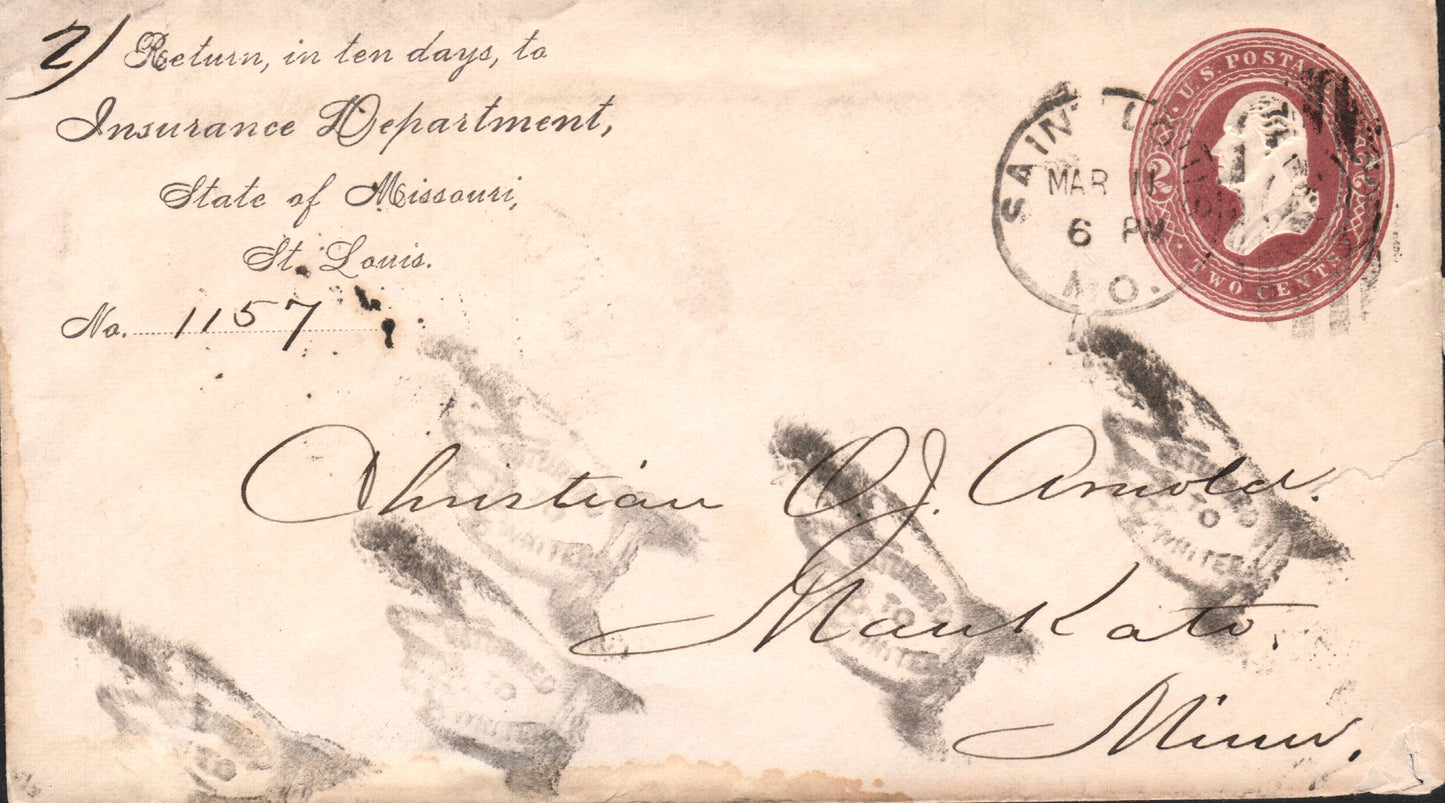 2) Return, in ten days, to
Insurance Department,
State of Missouri,
St. Louis.
No. 1157
SAINT LOUIS
MAR 11
6 PM
MO.
U.S. POSTAGE
2 2
TWO CENTS
Christian J. Arnold.
Mankato,
Minn.
RETURNED
TO
WRITER
RETURNED
TO
WRITER
RETURNED
TO
WRITER
RETURNED
TO
WRITER
TO